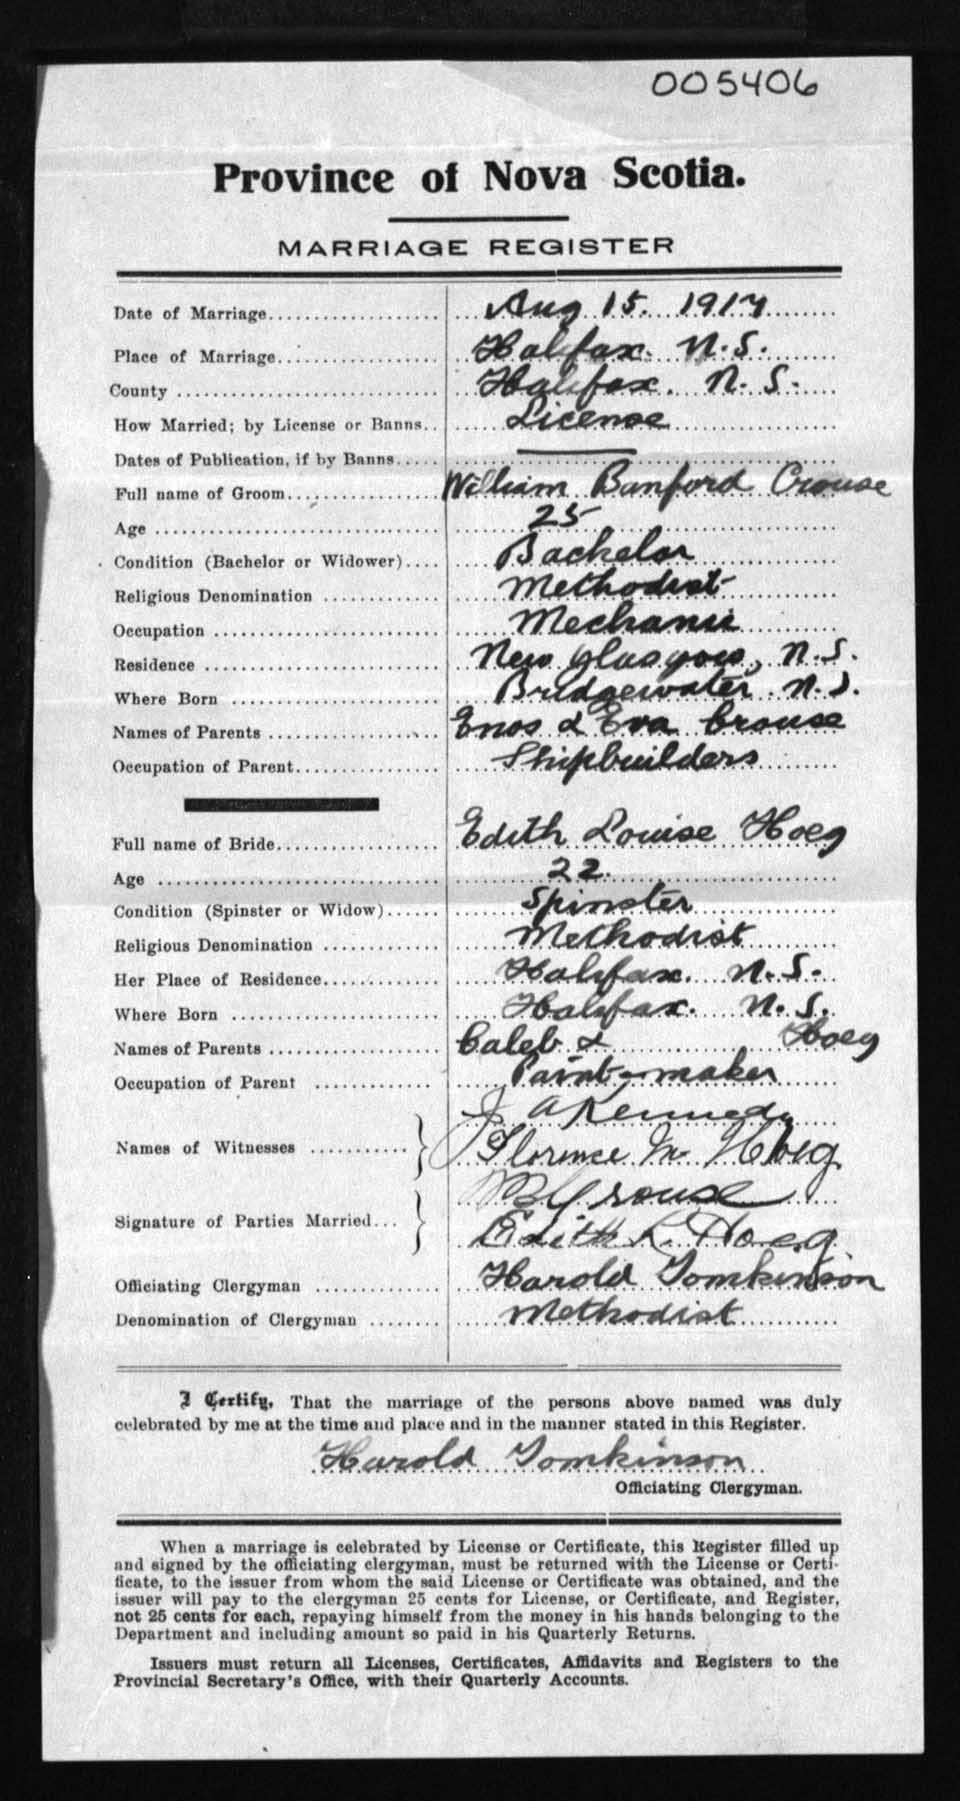 005406
Province of Nova Scotia.
MARRIAGE REGISTER
Date of Marriage Aug 15. 1917
Place of Marriage Halifax. N.S.
County Halifax. N.S.
How Married; by License or Banns License
Dates of Publication, if by Banns —
Full name of Groom William Banford Crouse
Age 25
Condition (Bachelor or Widower) Bachelor
Religious Denomination Methodist
Occupation Mechanic
Residence New Glasgow, N.S.
Where Born Bridgewater N.S.
Names of Parents Enos & Eva Crouse
Occupation of Parent Shipbuilders
Full name of Bride Edith Louise Hoeg
Age 22.
Condition (Spinster or Widow) Spinster
Religious Denomination Methodist
Her Place of Residence Halifax. N.S.
Where Born Halifax. N.S.
Names of Parents Caleb & Hoeg
Occupation of Parent Paint-maker
Names of Witnesses J A Kennedy
Florence M Hoeg
Signature of Parties Married WB Crouse
Edith L. Hoeg
Officiating Clergyman Harold Tomkinson
Denomination of Clergyman Methodist
I Certify, That the marriage of the persons above named was duly
celebrated by me at the time and place and in the manner stated in this Register.
Harold Tomkinson
Officiating Clergyman.
When a marriage is celebrated by License or Certificate, this Register filled up
and signed by the officiating clergyman, must be returned with the License or Certi-
ficate, to the issuer from whom the said License or Certificate was obtained, and the
issuer will pay to the clergyman 25 cents for License, or Certificate, and Register,
not 25 cents for each, repaying himself from the money in his hands belonging to the
Department and including amount so paid in his Quarterly Returns.
Issuers must return all Licenses, Certificates, Affidavits and Registers to the
Provincial Secretary's Office, with their Quarterly Accounts.